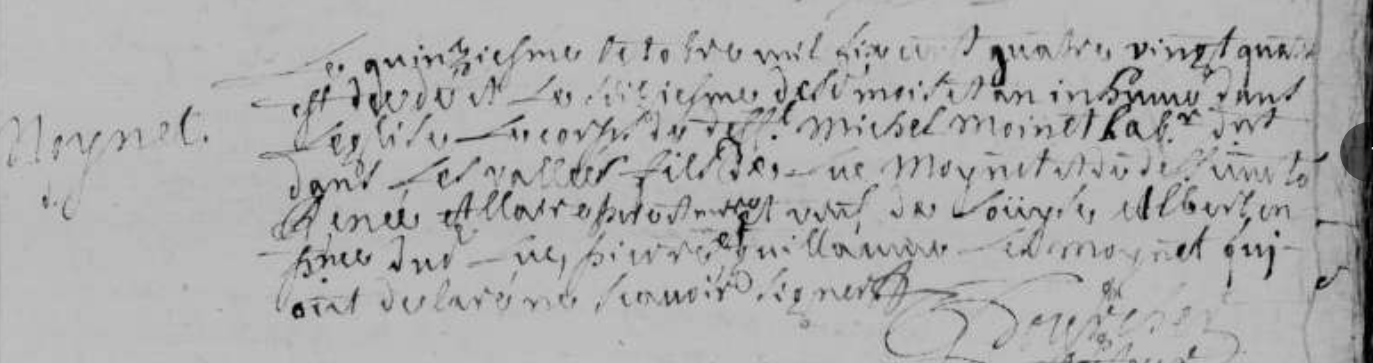 Moynet.
d.
Le quinziesme octobre mil six cent quatre vingt quatre
est decedé et le seiziesme desd mois et an inhumé dans
Leglise Le corps de deff.t Michel Moinet Lab.r
dans Les vallees fils de Luc Moynet et de deffuncte
Renee veuf de Louyse Albert en
pñce dud Luc, pierre et guillaume Les Moynet qui
ont declaré ne scavoir signer